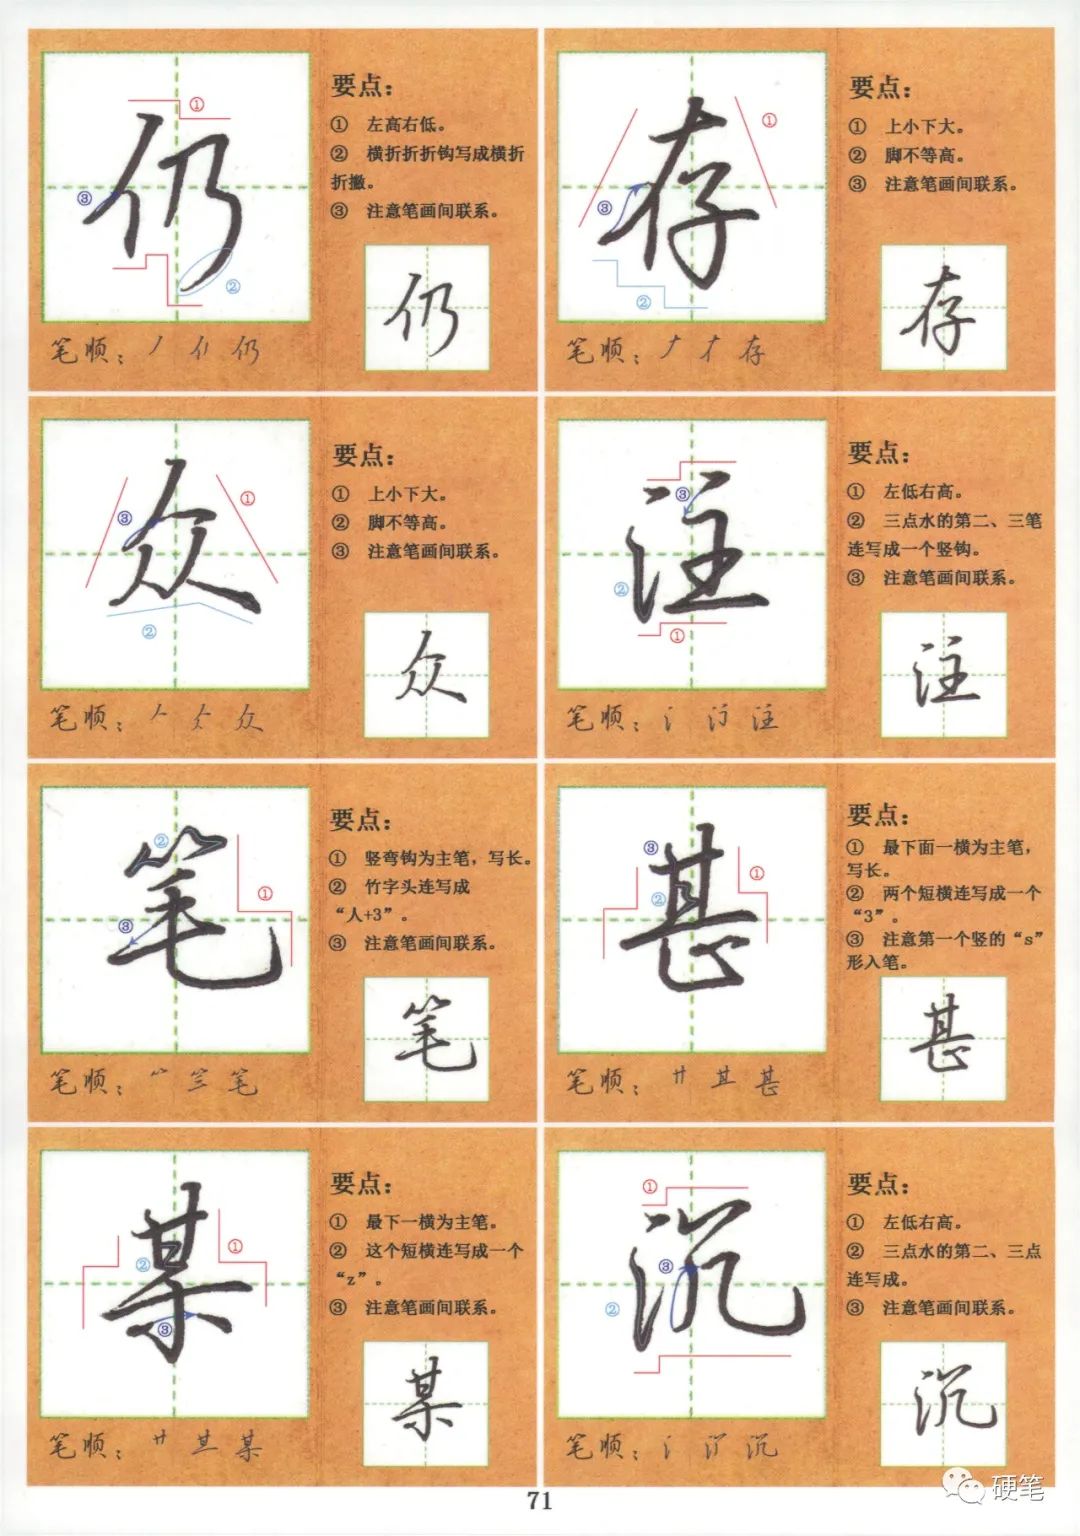 仍
①
③
②
要点：
① 左高右低。
② 横折折折钩写成横折
折撇。
③ 注意笔画间联系。
仍
笔顺：丿 亻 仍
存
①
③
②
要点：
① 上小下大。
② 脚不等高。
③ 注意笔画间联系。
存
笔顺：𠂇 才 存
众
①
③
②
要点：
① 上小下大。
② 脚不等高。
③ 注意笔画间联系。
众
笔顺：人 众
注
③
②
①
要点：
① 左低右高。
② 三点水的第二、三笔
连写成一个竖钩。
③ 注意笔画间联系。
注
笔顺：氵 注
笔
②
①
③
要点：
① 竖弯钩为主笔，写长。
② 竹字头连写成
“人+3”。
③ 注意笔画间联系。
笔
笔顺：笔
甚
③
①
②
要点：
① 最下面一横为主笔，
写长。
② 两个短横连写成一个
“3”。
③ 注意第一个竖的“s”
形入笔。
甚
笔顺：艹 甚
某
①
②
③
要点：
① 最下一横为主笔。
② 这个短横连写成一个
“z”。
③ 注意笔画间联系。
某
笔顺：艹 某
沉
①
③
②
要点：
① 左低右高。
② 三点水的第二、三点
连写成。
③ 注意笔画间联系。
沉
笔顺：氵 沉
71
硬笔